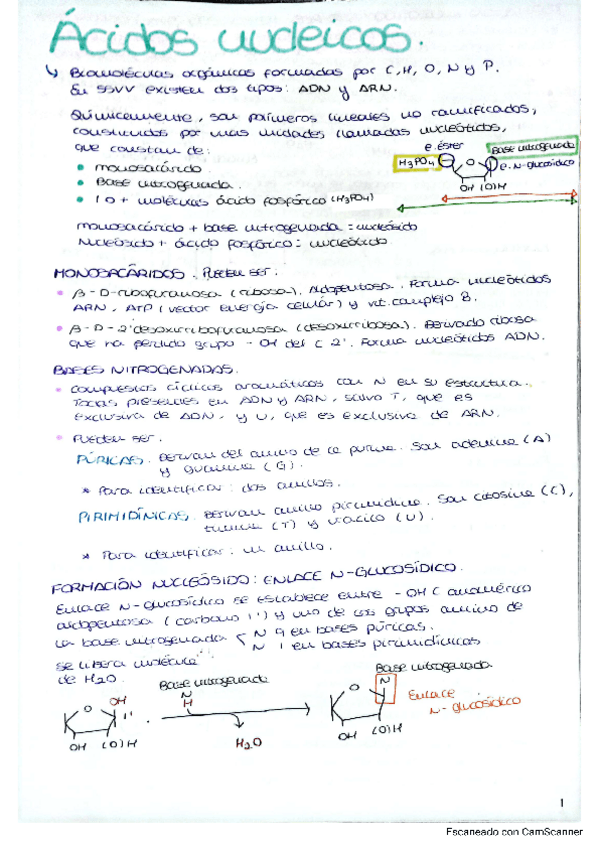 Ácidos nucleicos.
↳ Biomoléculas orgánicas formadas por C, H, O, N y P.
En SSVV existen dos tipos: ADN y ARN.
Químicamente, son polímeros lineales no ramificados,
constituidos por más unidades llamadas nucleótidos,
que constan de:
• monosacárido.
• Base nitrogenada.
• 1 o + moléculas ácido fosfórico (H3PO4)
e. éster
Base nitrogenada
H3PO4
O
e. N-glucosídico
OH (O)H
monosacárido + base nitrogenada = nucleósido
Nucleósido + ácido fosfórico = nucleótido
MONOSACÁRIDOS. Pueden ser:
• β-D-ribofuranosa (ribosa). Aldopentosa. Forma nucleótidos
ARN, ATP (vector energía celular) y vit. complejo B.
• β-D-2'desoxirribofuranosa (desoxirribosa). Derivado ribosa
que ha perdido grupo -OH del C 2'. Forma nucleótidos ADN.
BASES NITROGENADAS.
• Compuestos cíclicos aromáticos con N en su estructura.
Todas presentes en ADN y ARN, salvo T, que es
exclusiva de ADN, y U, que es exclusiva de ARN.
• Pueden ser:
PÚRICAS. Derivan del anillo de la purina. Son adenina (A)
y guanina (G).
* Para identificar: dos anillos.
PIRIMIDÍNICAS. Derivan anillo pirimidina. Son citosina (C),
timina (T) y uracilo (U).
* Para identificar: un anillo.
FORMACIÓN NUCLEÓSIDO: ENLACE N-GLUCOSÍDICO.
Enlace N-glucosídico se establece entre -OH C anomérico
aldopentosa (carbono 1') y uno de los grupos amino de
la base nitrogenada < N 9 en bases púricas.
N 1 en bases pirimidínicas
se libera molécula
de H2O.
Base nitrogenada
N
H
OH
O
1'
OH (O)H
H2O
Base nitrogenada
N
O
OH (O)H
Enlace
N-glucosídico
1
Escaneado con CamScanner